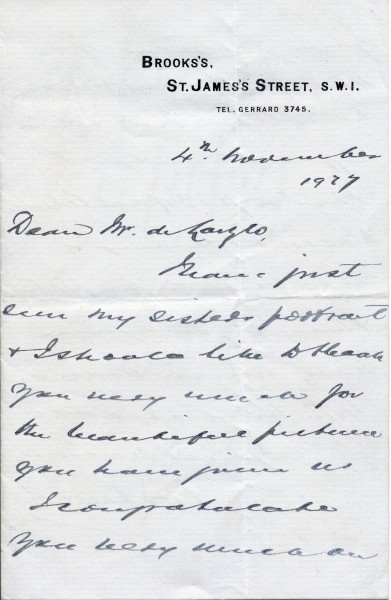 BROOKS'S,
ST. JAMES'S STREET, S.W.1.
TEL. GERRARD 3745.
4th November
1927
Dear Mr. de Laszlo,
I have just
seen my sisters portrait
& I should like to thank
you very much for
the beautiful picture
you have given us
I congratulate
you very much on